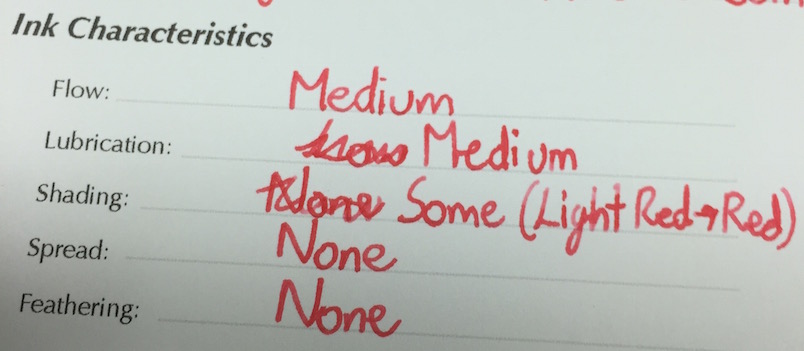 Ink Characteristics
Flow: Medium
Lubrication: Medium
Shading: None Some (Light Red→Red)
Spread: None
Feathering: None